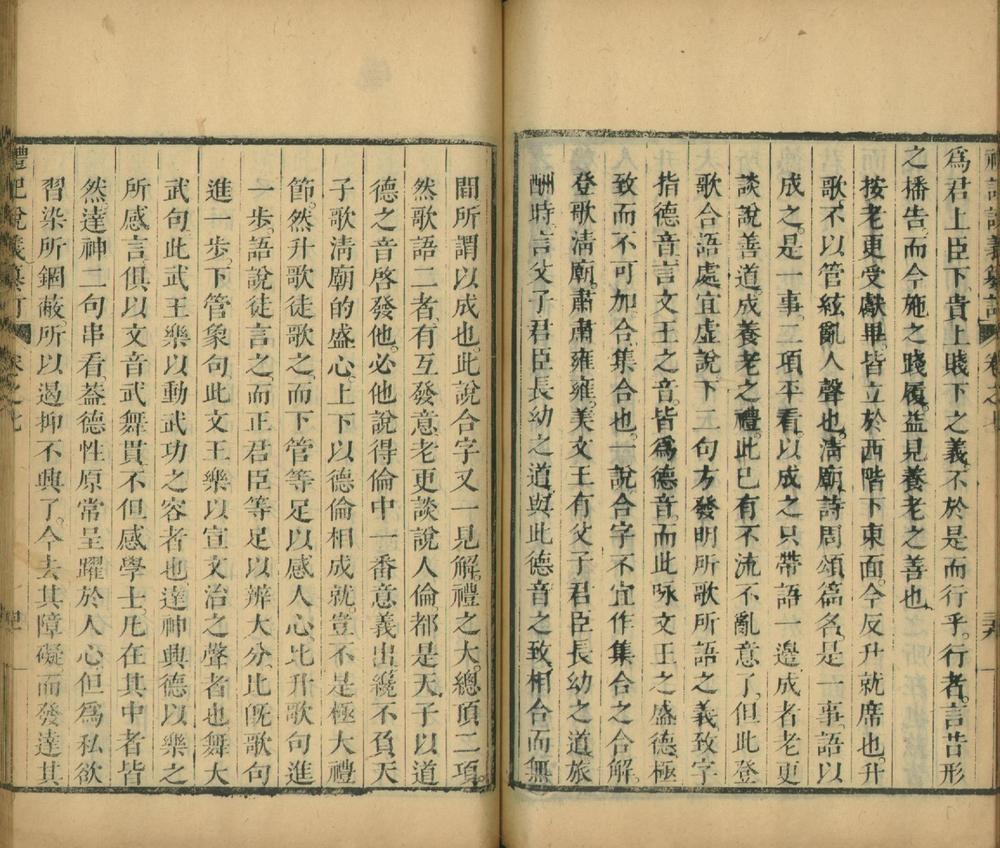 禮記說義纂訂 卷之七
爲君上臣下貴上賤下之義不於是而行乎行者言告形
之播告而今施之踐履益見養老之善也
按老更受獻畢皆立於西階下東面今反升就席也升
歌不以管絃亂人聲也淸廟詩周頌篇名是一事語以
成之是一事二項平看以成之只帶語一邊成者老更
談說善道成養老之禮此已有不流不亂意了但此登
歌合語處宜虛說下二句方發明所歌所語之義致字
指德音言文王之音皆爲德音而此咏文王之盛德極
致而不可加合集合也一說合字不宜作集合之合解
登歌淸廟肅肅雍雍美文王有父子君臣長幼之道旅
酬時言父子君臣長幼之道與此德音之致相合而無
間所謂以成也此說合字又一見解禮之大總頂二項
然歌語二者有互發意老更談說人倫都是天子以道
德之音啓發他必他說得倫中一番意義出纔不負天
子歌淸廟的盛心上下以德倫相成就豈不是極大禮
節然升歌徒歌之而下管等足以感人心比升歌句進
一步語說徒言之而正君臣等足以辨大分比旣歌句
進一步下管象句此文王樂以宣文治之聲者也舞大
武句此武王樂以動武功之容者也達神興德以樂之
所感言俱以文音武舞貫不但感學士凡在其中者皆
然達神二句串看葢德性原常呈躍於人心但爲私欲
習染所錮蔽所以遏抑不興了今去其障礙而發達其
禮記說義纂訂 卷之七